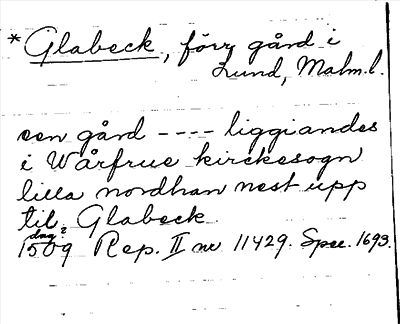 * Glabeck, förr gård i
Lund, Malm.l.
een gård ---- liggiandes
i Wårfrue kirckesogn
lilla nordhan nest upp
til Glabeck
dng?
1509 Rep. II nr 11429. Spec. 1693.